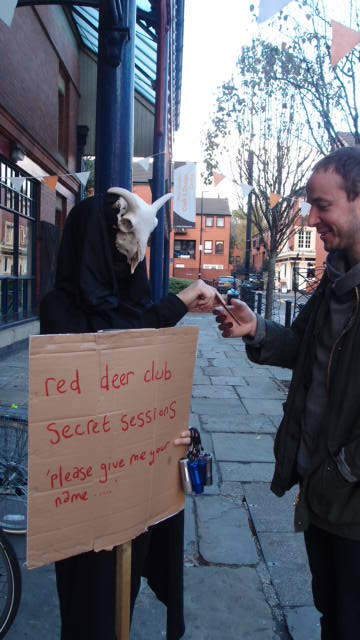 red deer club
secret sessions
'please give me your
name .....'